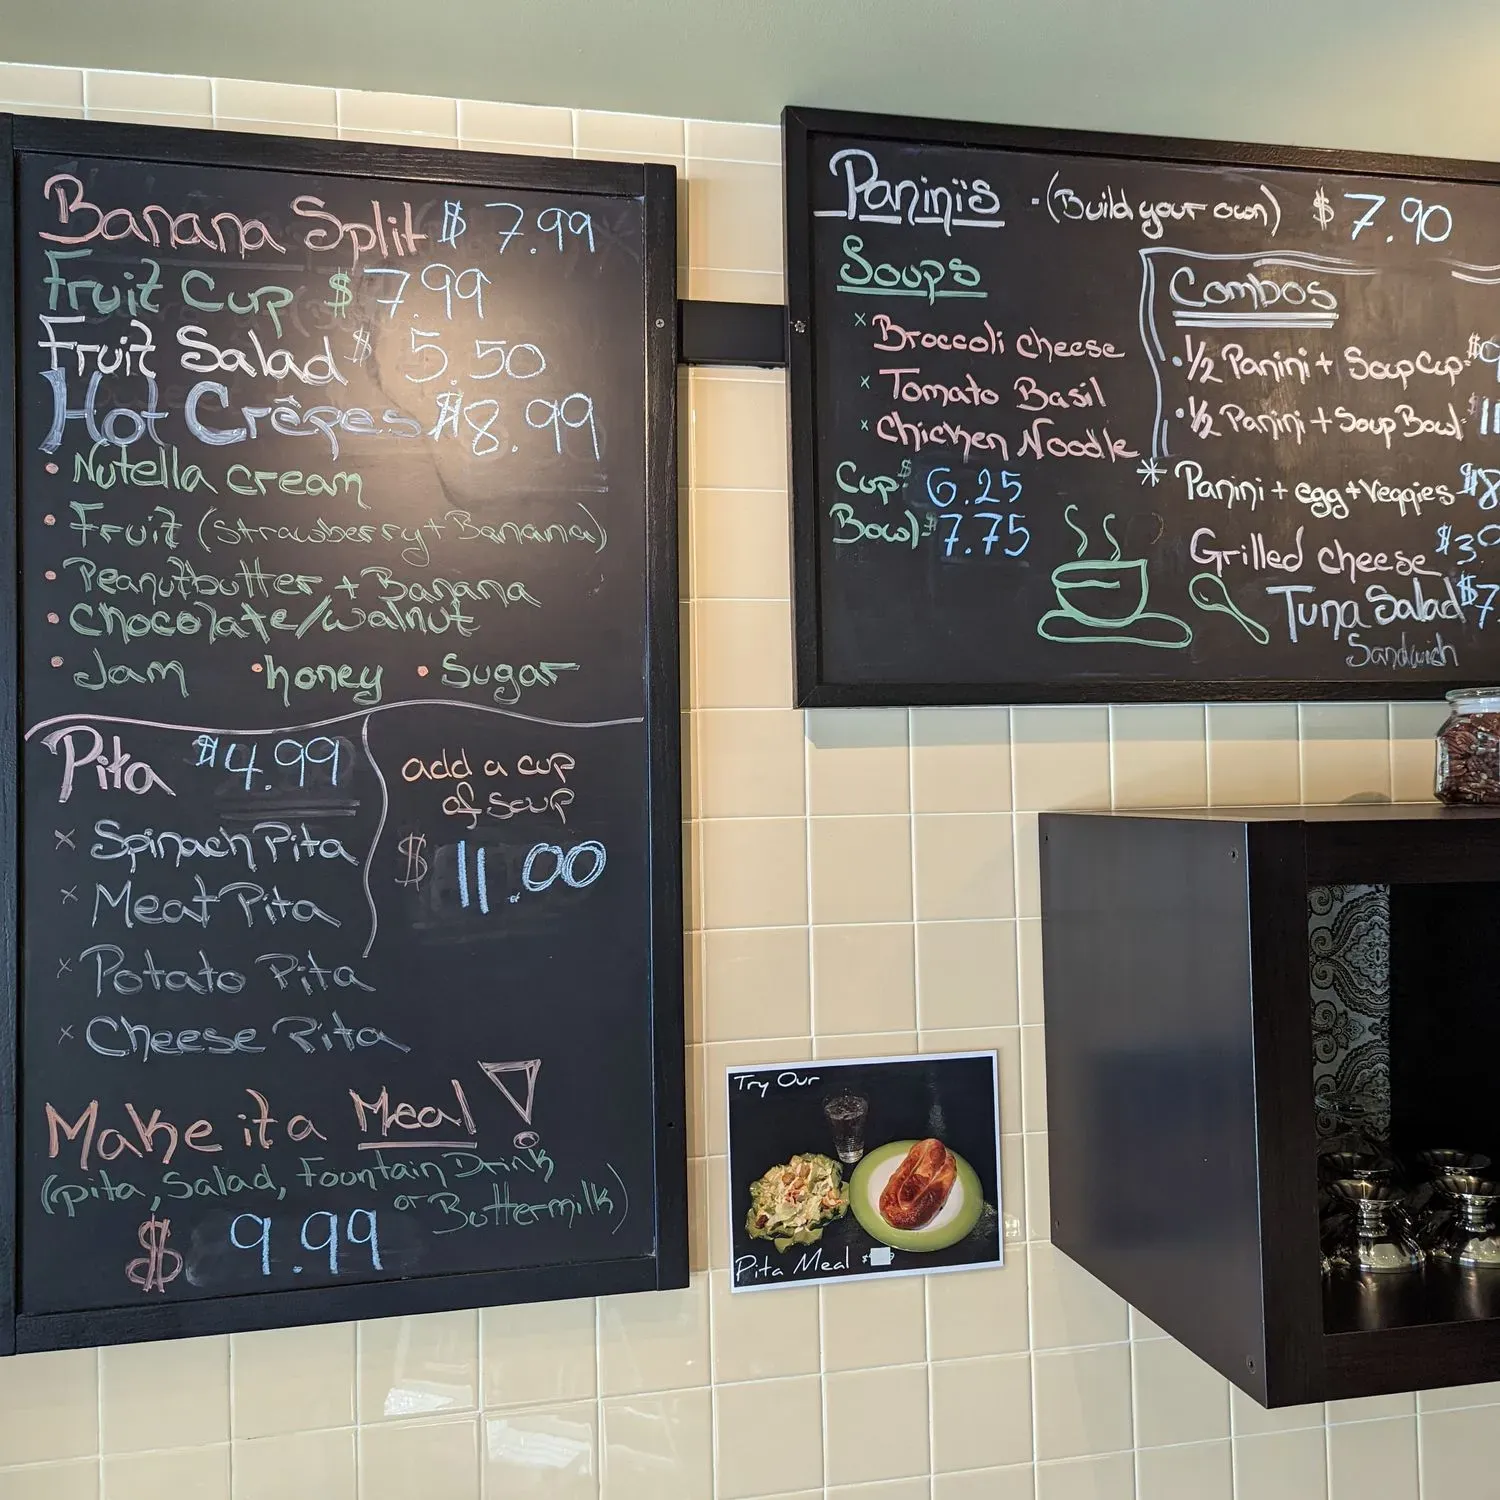 Banana Split $ 7.99
Fruit Cup $ 7.99
Fruit Salad $ 5.50
Hot Crêpes $8.99
• Nutella cream
• Fruit (strawberry + Banana)
• Peanutbutter + Banana
• Chocolate/walnut
• Jam • honey • Sugar
Pita $4.99
x Spinach Pita
x Meat Pita
x Potato Pita
x Cheese Pita
add a cup
of soup
$ 11.00
Make it a Meal!
(pita, Salad, Fountain Drink
or Buttermilk)
$ 9.99
Panini's - (Build your own) $ 7.90
Soups
x Broccoli cheese
x Tomato Basil
x Chicken Noodle
Cup $ 6.25
Bowl $ 7.75
Combos
• 1/2 Panini + Soup Cup $
• 1/2 Panini + Soup Bowl $11
* Panini + egg + Veggies $8
Grilled cheese $3.0
Tuna Salad $7.
Sandwich
Try Our
Pita Meal $